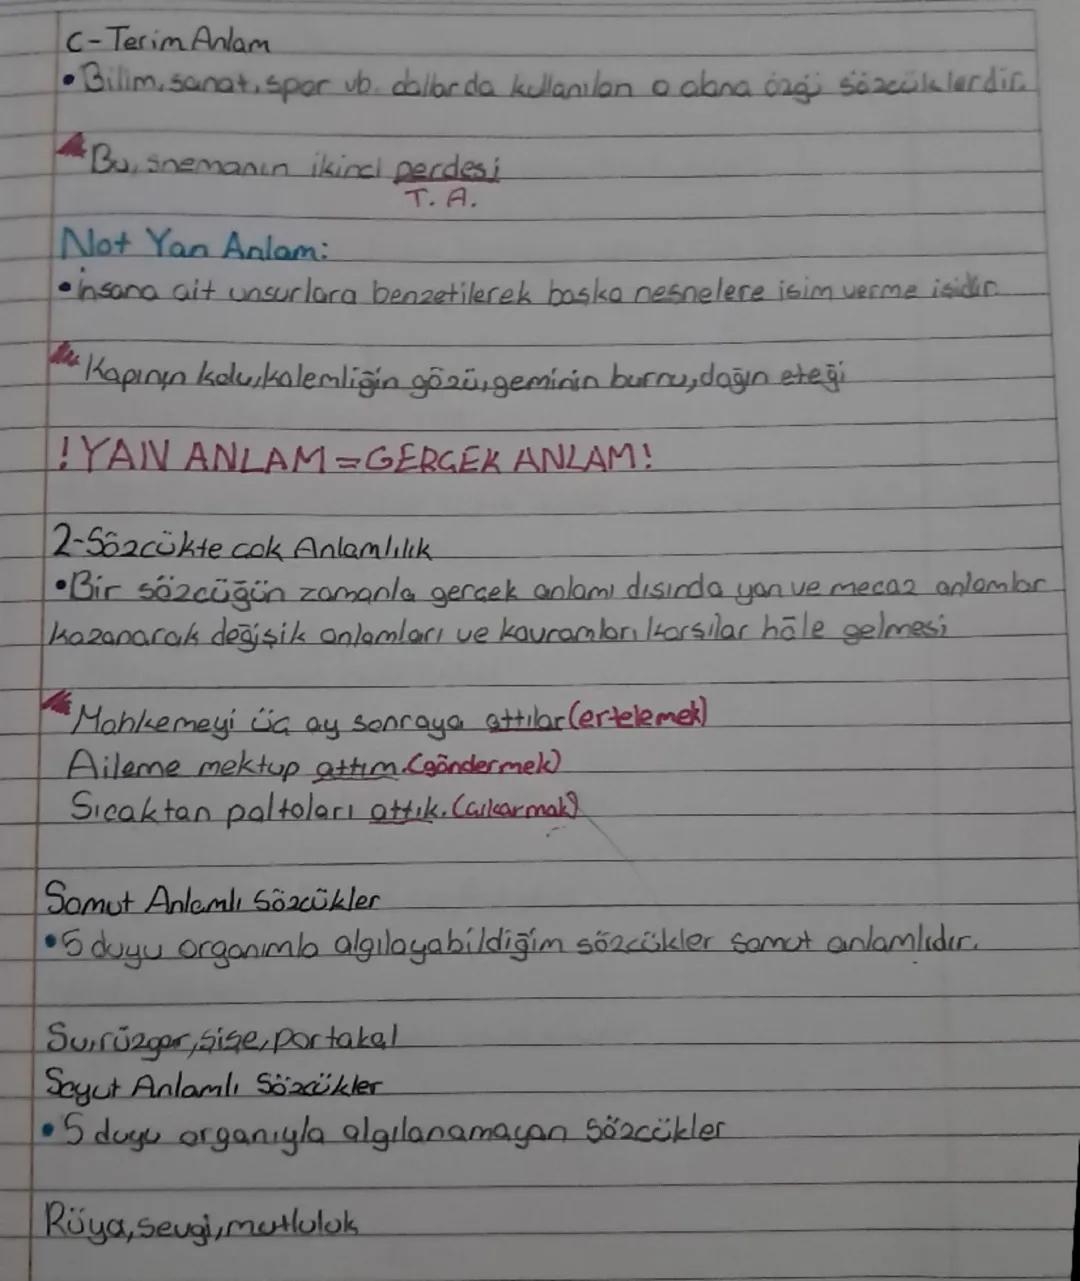 C-Terim Anlam
•Bilim, sanat, spor vb. dallarda kullanılan o alana özgü sözcüklerdir.
Bu, sinemanın ikinci perdesi
T. A.
Not Yan Anlam:
•İnsana ait unsurlara benzetilerek başka nesnelere isim verme işidir.
Kapının kolu, kalemliğin gözü, geminin burnu, dağın eteği
! YAN ANLAM = GERÇEK ANLAM!
2-Sözcükte çok Anlamlılık
•Bir sözcüğün zamanla gerçek anlamı dışında yan ve mecaz anlamlar
kazanarak değişik anlamları ve kavramları karşılar hâle gelmesi
Mahkemeyi üç ay sonraya attılar (ertelemek)
Aileme mektup attım. (göndermek)
Sıcaktan paltoları attık. (çıkarmak)
Somut Anlamlı Sözcükler
•5 duyu organımla algılayabildiğim sözcükler somut anlamlıdır.
Su, rüzgar, şişe, portakal
Soyut Anlamlı Sözcükler
•5 duyu organıyla algılanamayan sözcükler
Rüya, sevgi, mutluluk